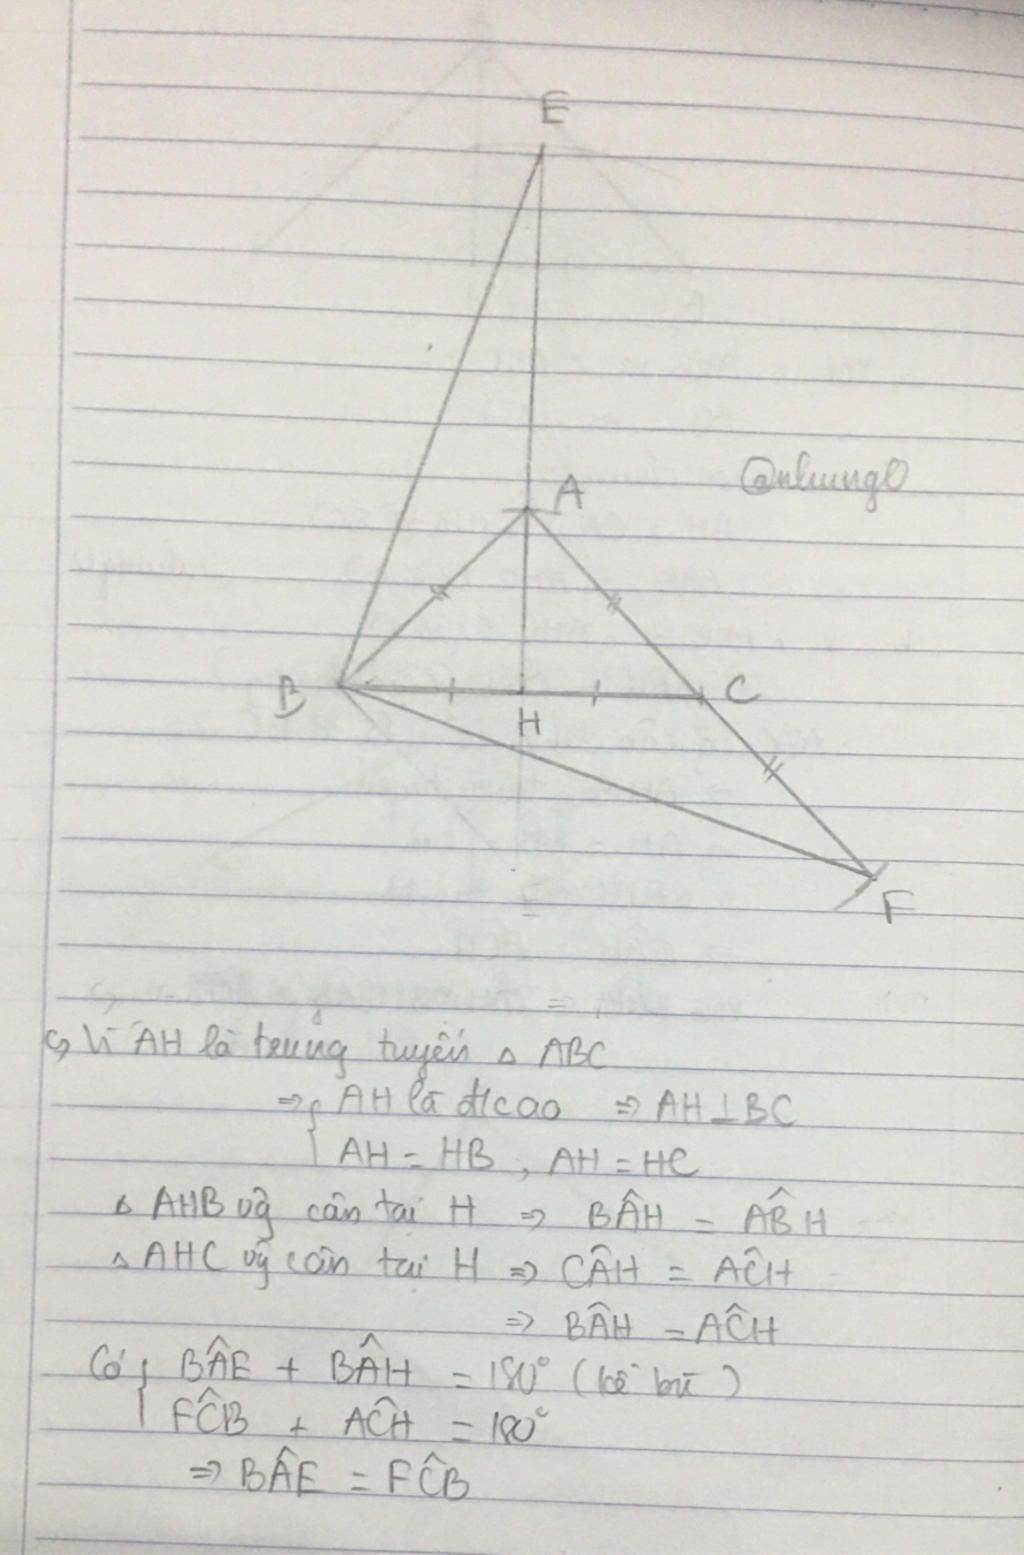 E
A
@nhungl
B
C
H
F
c, Vì AH là trung tuyến △ ABC
⇒ { AH là đ/cao ⇒ AH ⊥ BC
AH = HB , AH = HC
△ AHB vg cân tại H ⇒ BÂH = AB̂H
△ AHC vg cân tại H ⇒ CÂH = AĈH
⇒ BÂH = AĈH
Có { BÂE + BÂH = 180° (kề bù)
FĈB + AĈH = 180°
⇒ BÂE = FĈB